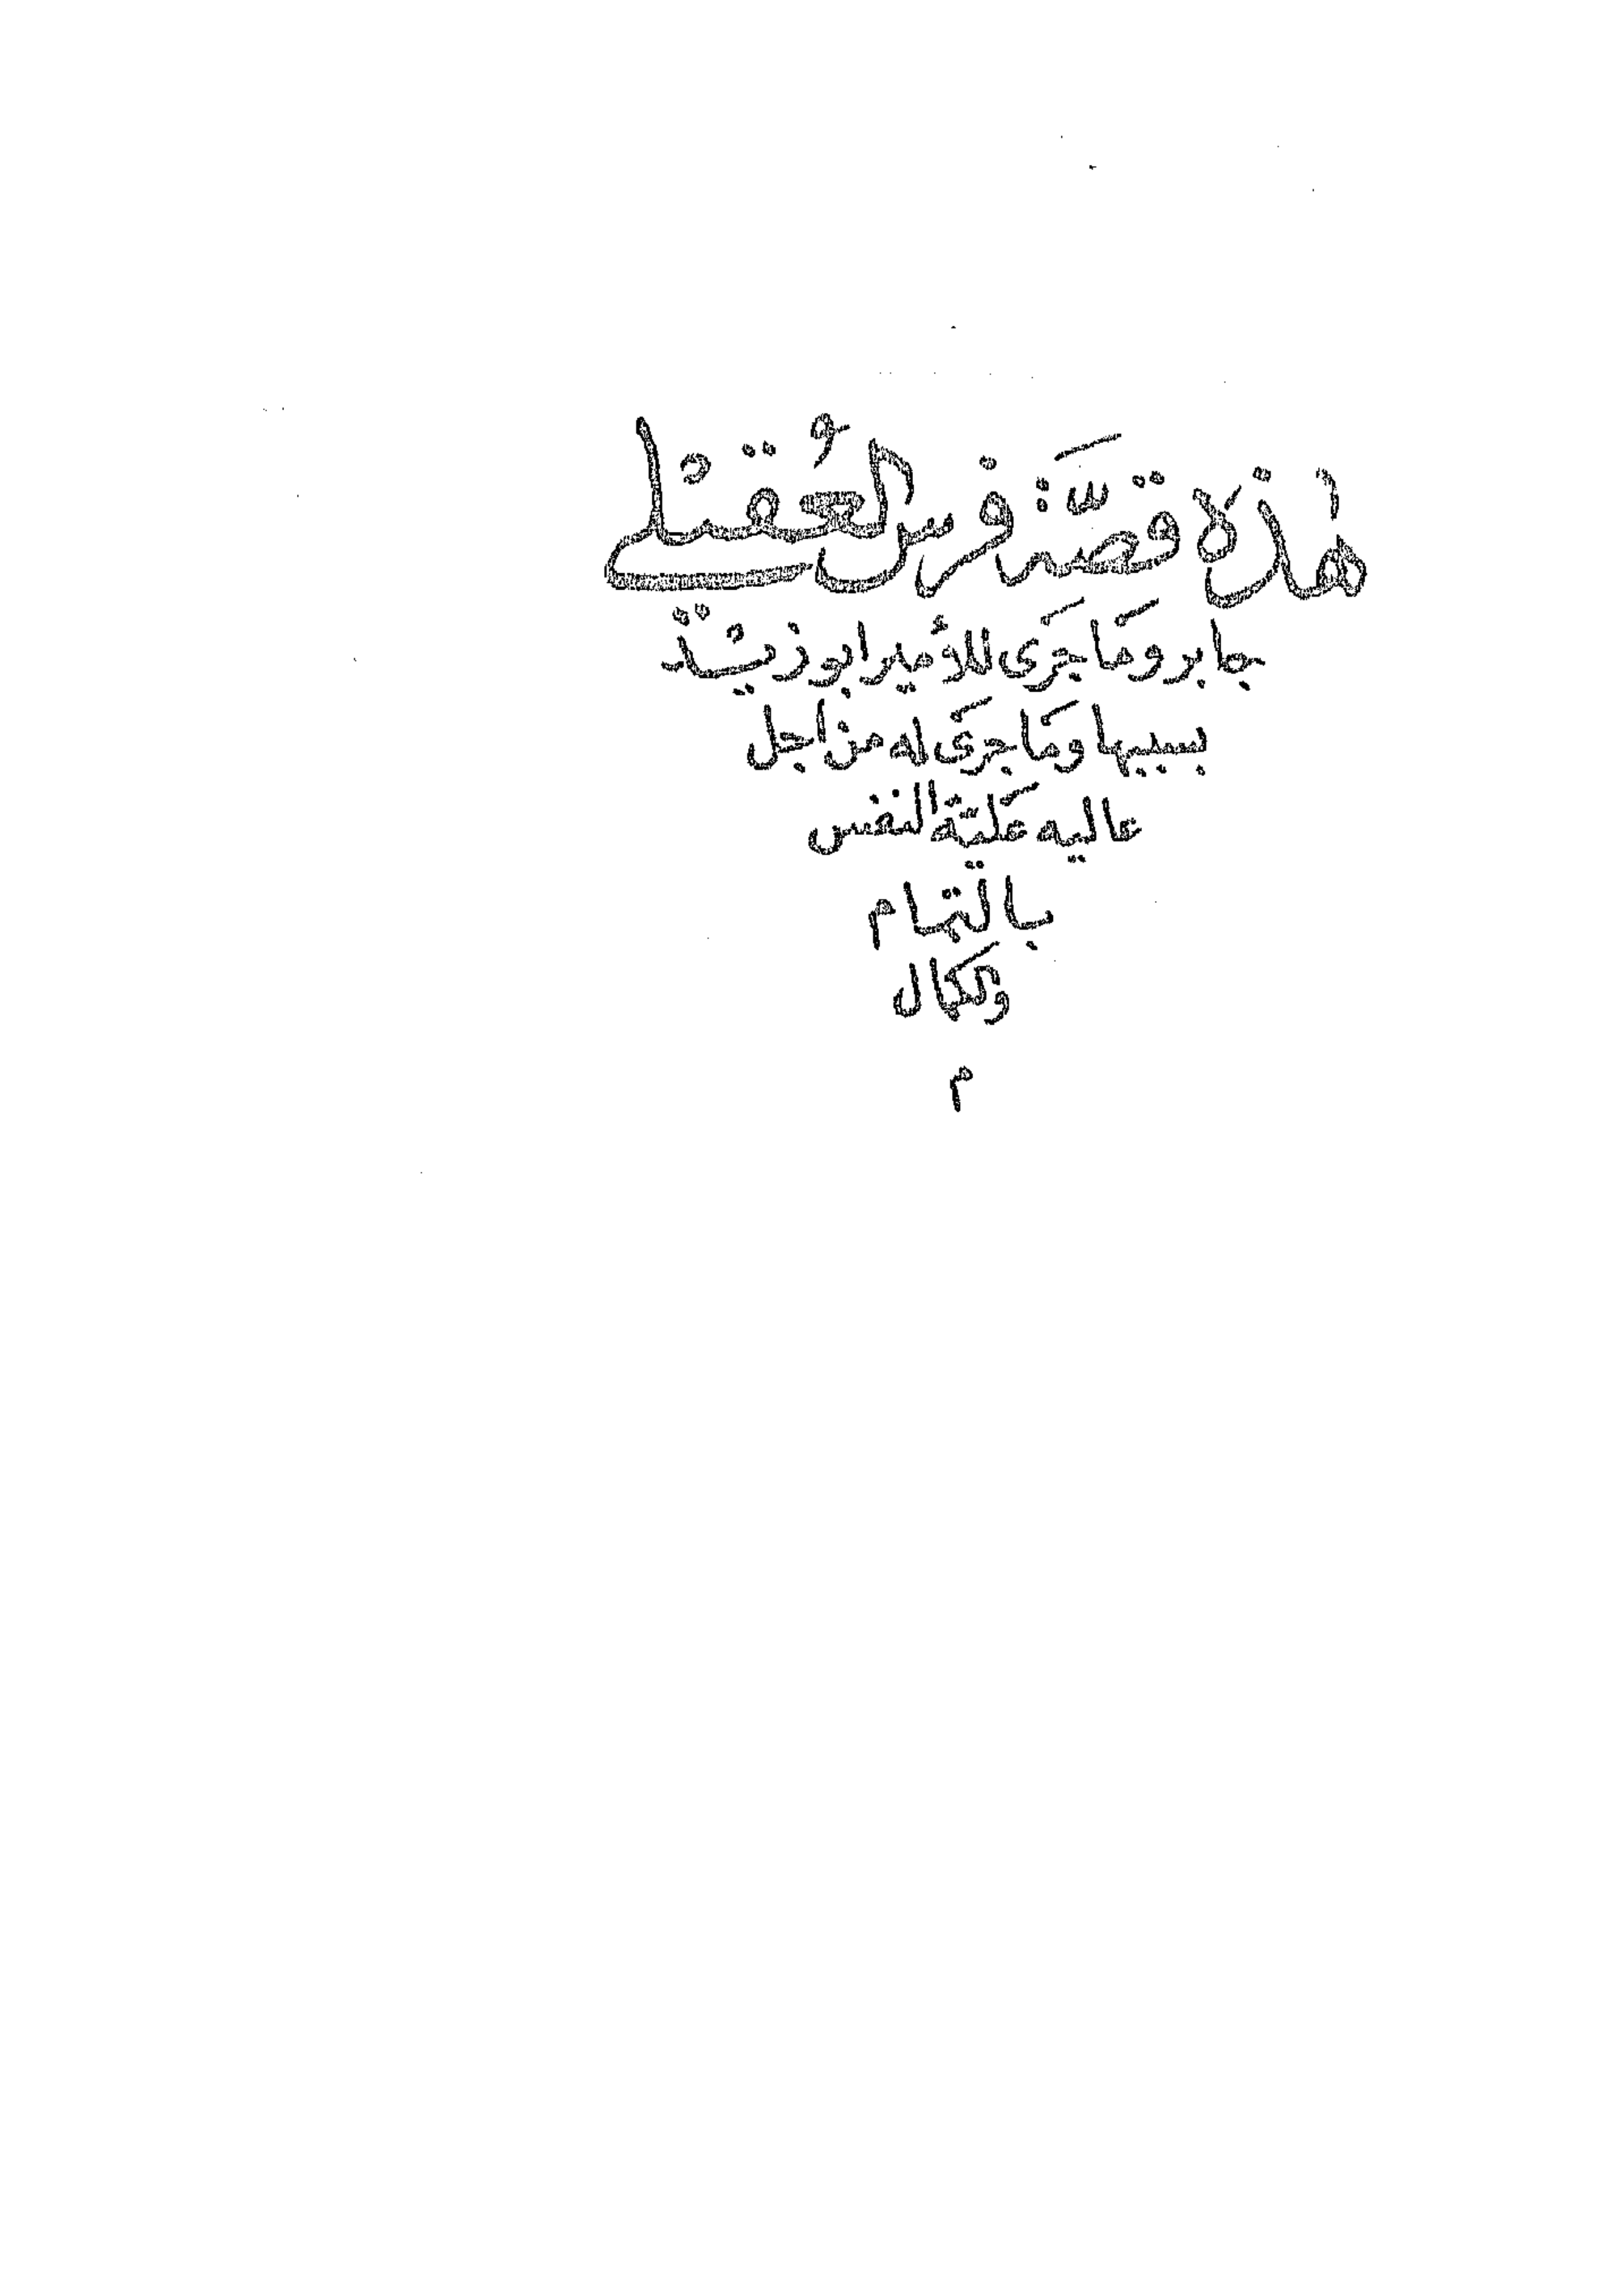 هٰذِهِ قصَّة فرس العُقيْلي
جابر ومَا جرَى للأمير ابو زيْد
بسببها ومَا جرَى له من اجل
عاليه عَليّة النفس
بالتمام
ولكمال
م